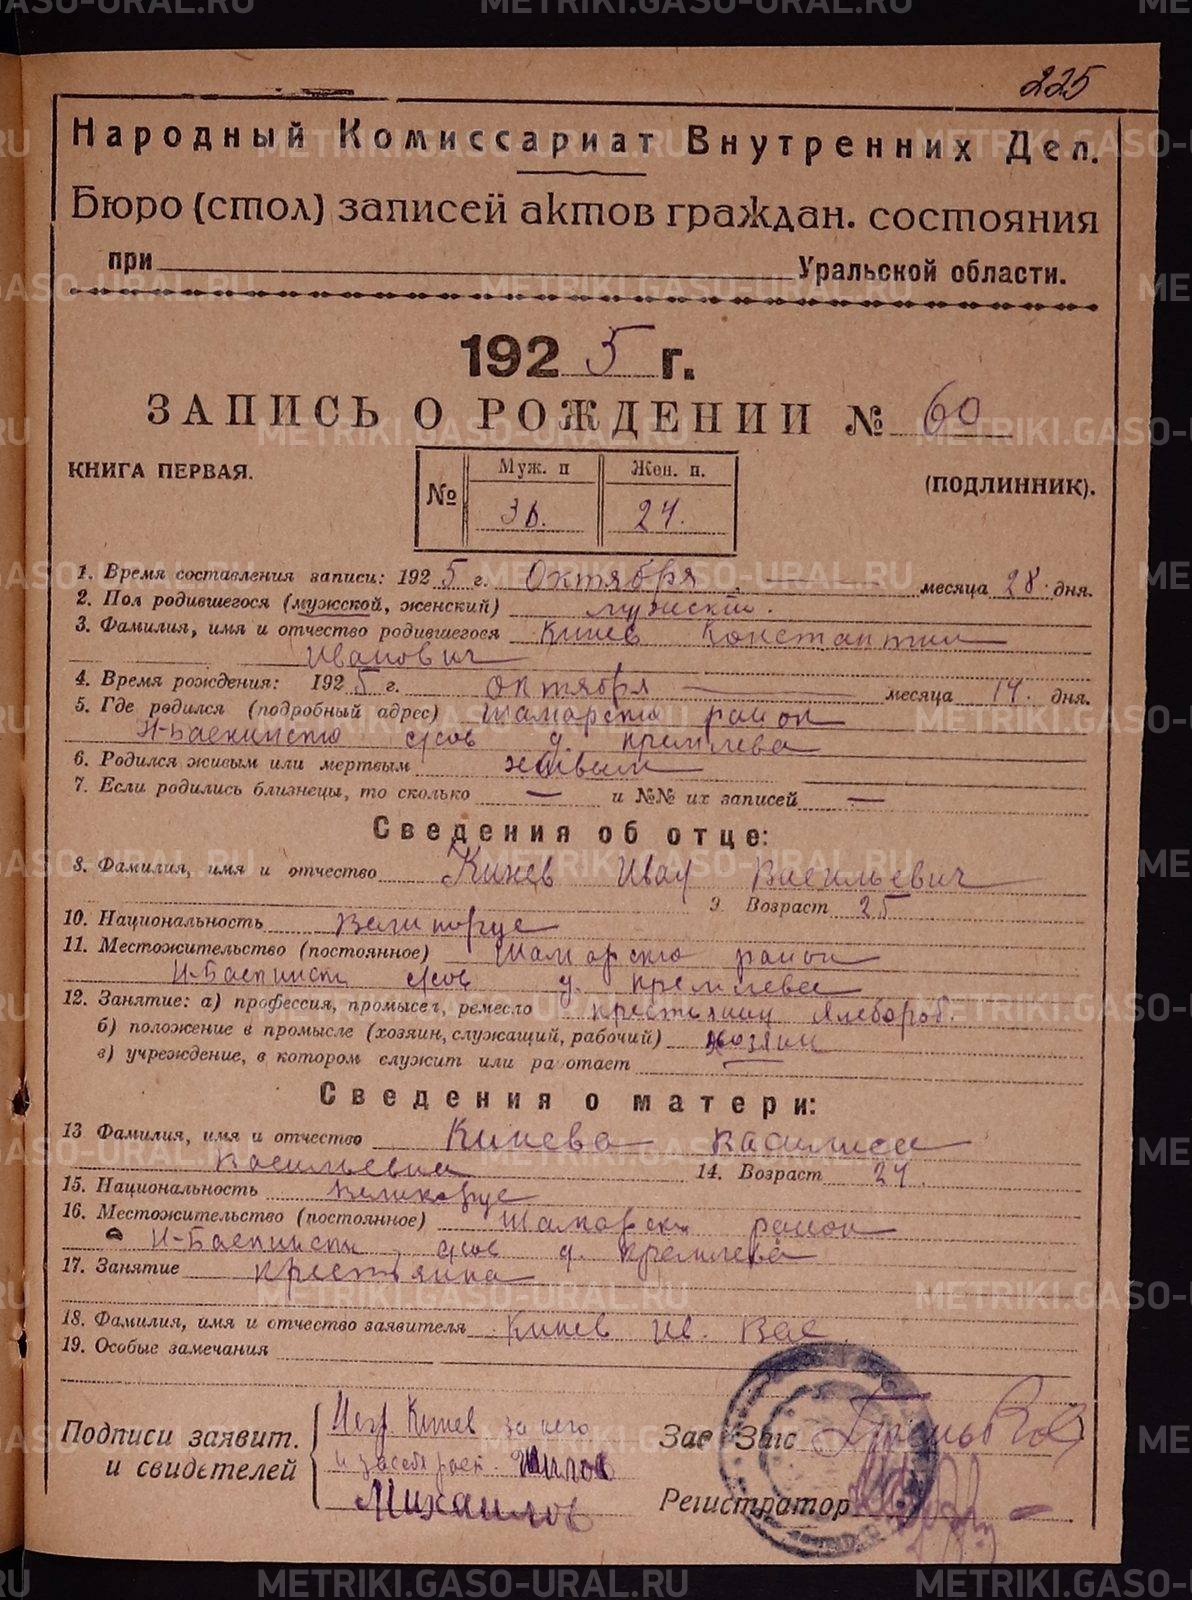 225
Народный Комиссариат Внутренних Дел.
Бюро (стол) записей актов граждан. состояния
при Уральской области.
1925 г.
ЗАПИСЬ О РОЖДЕНИИ № 60
КНИГА ПЕРВАЯ.
№ Муж. п Жен. п.
36. 24.
(ПОДЛИННИК).
1. Время составления записи: 1925 г. Октября месяца 28 дня.
2. Пол родившегося (мужской, женский) мужской.
3. Фамилия, имя и отчество родившегося Кинев Константин
Иванович
4. Время рождения: 1925 г. октября месяца 14. дня.
5. Где родился (подробный адрес) Шамарско район
с/сов д. кремлева
6. Родился живым или мертвым живым
7. Если родились близнецы, то сколько — и №№ их записей —
Сведения об отце:
8. Фамилия, имя и отчество Кинев Иван Васильевич
9. Возраст 25
10. Национальность Великорус
11. Местожительство (постоянное) Шамарско район
с/сов д. кремлева
12. Занятие: а) профессия, промысел, ремесло крестьянин хлебороб.
б) положение в промысле (хозяин, служащий, рабочий) хозяин
в) учреждение, в котором служит или работает
Сведения о матери:
13 Фамилия, имя и отчество Кинева Васлиса
Васильевна 14. Возраст 24.
15. Национальность великорус
16. Местожительство (постоянное) Шамарски район
с/сов д. Кремлева
17. Занятие крестьянка
18. Фамилия, имя и отчество заявителя Кинев Ив. Вас.
19. Особые замечания
Подписи заявит.
и свидетелей
Негр Кинев за него
и за себя рост.
Михаилов
Зав Загс
Регистратор
METRIKI.GASO-URAL.RU